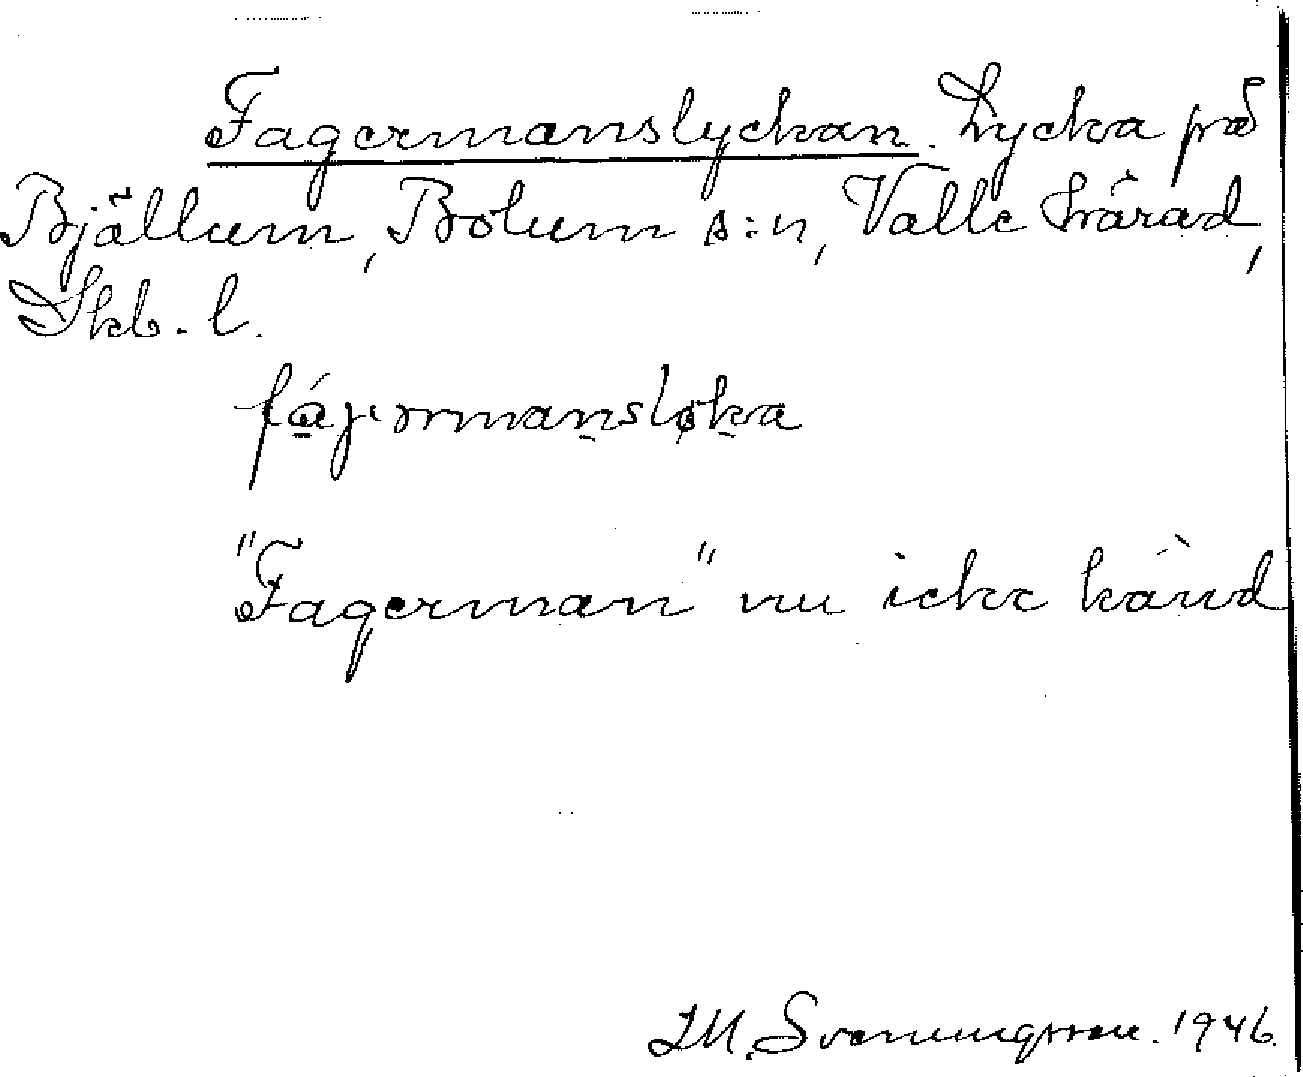 Fagermanslyckan. Lycka på
Bjällum, Bolum s:n, Valle härad,
Skb. l.
"Fagerman" nu icke känd
Svenungsson. 1946.